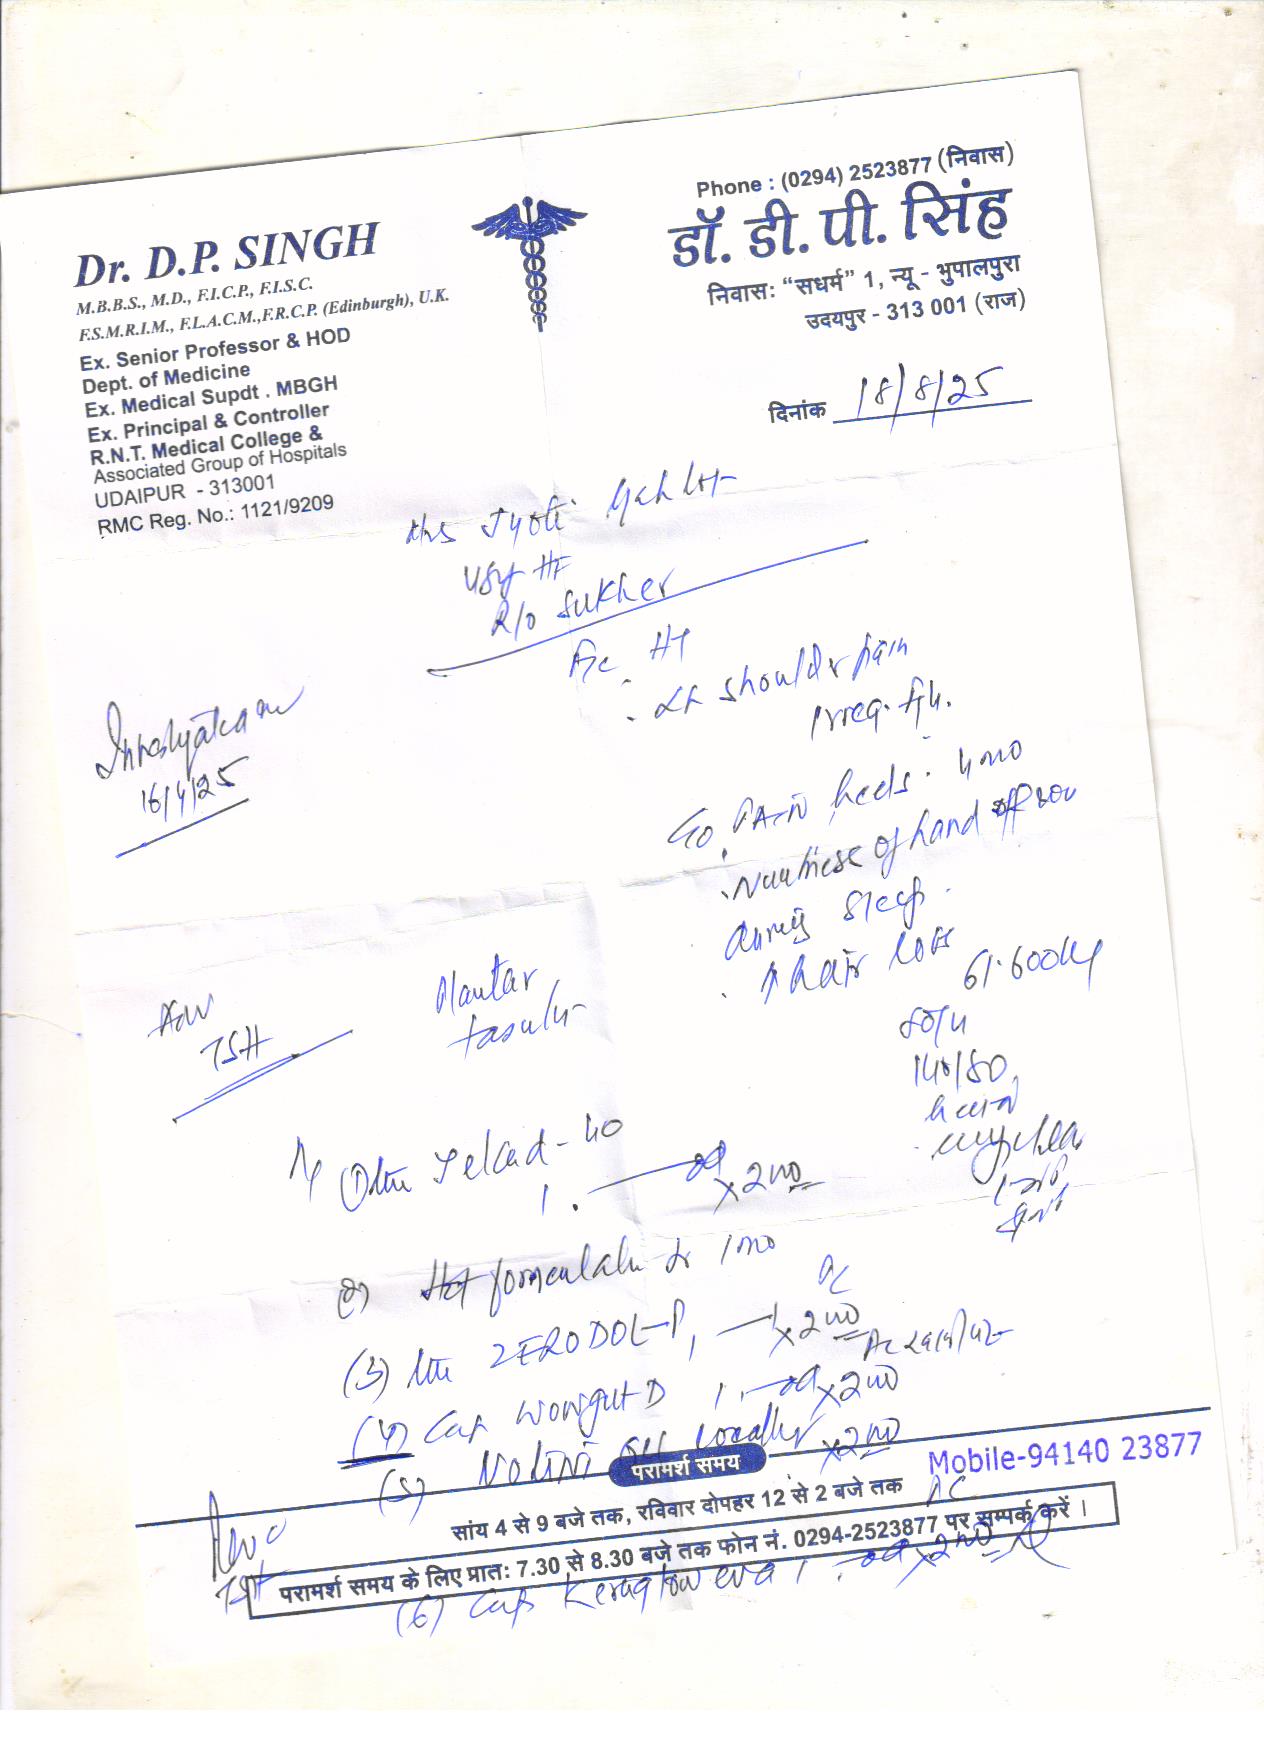 Phone : (0294) 2523877 (निवास)
Dr. D.P. SINGH
M.B.B.S., M.D., F.I.C.P., F.I.S.C.
F.S.M.R.I.M., F.L.A.C.M.,F.R.C.P. (Edinburgh), U.K.
Ex. Senior Professor & HOD
Dept. of Medicine
Ex. Medical Supdt . MBGH
Ex. Principal & Controller
R.N.T. Medical College &
Associated Group of Hospitals
UDAIPUR - 313001
RMC Reg. No.: 1121/9209
डॉ. डी. पी. सिंह
निवास: “सधर्म” 1, न्यू - भुपालपुरा
उदयपुर - 313 001 (राज)
दिनांक 18/8/25
Mrs Jyoti Gehlot
R/o Sukher
HT
Lt shoulder pain
Irreg.
16/4/25
C/o PAIN heels . 4 mo
Numbness of hand
during sleep .
↑ hair loss
61.600 kg
140/80
Adv
TSH
Plantar
① Telcad - 40
1 . od x 2 mo
2) Hot for 1 mo
(3) ZERODOL-P, x 2 mo
(4) Cap Wowgut D 1 . od x 2 mo
(5) Nolini gel locally x 2 mo
परामर्श समय
Mobile-94140 23877
सांय 4 से 9 बजे तक, रविवार दोपहर 12 से 2 बजे तक
परामर्श समय के लिए प्रात: 7.30 से 8.30 बजे तक फोन नं. 0294-2523877 पर सम्पर्क करें ।
TSH
(6) Cap Keraglow eva 1 . od x 2 mo